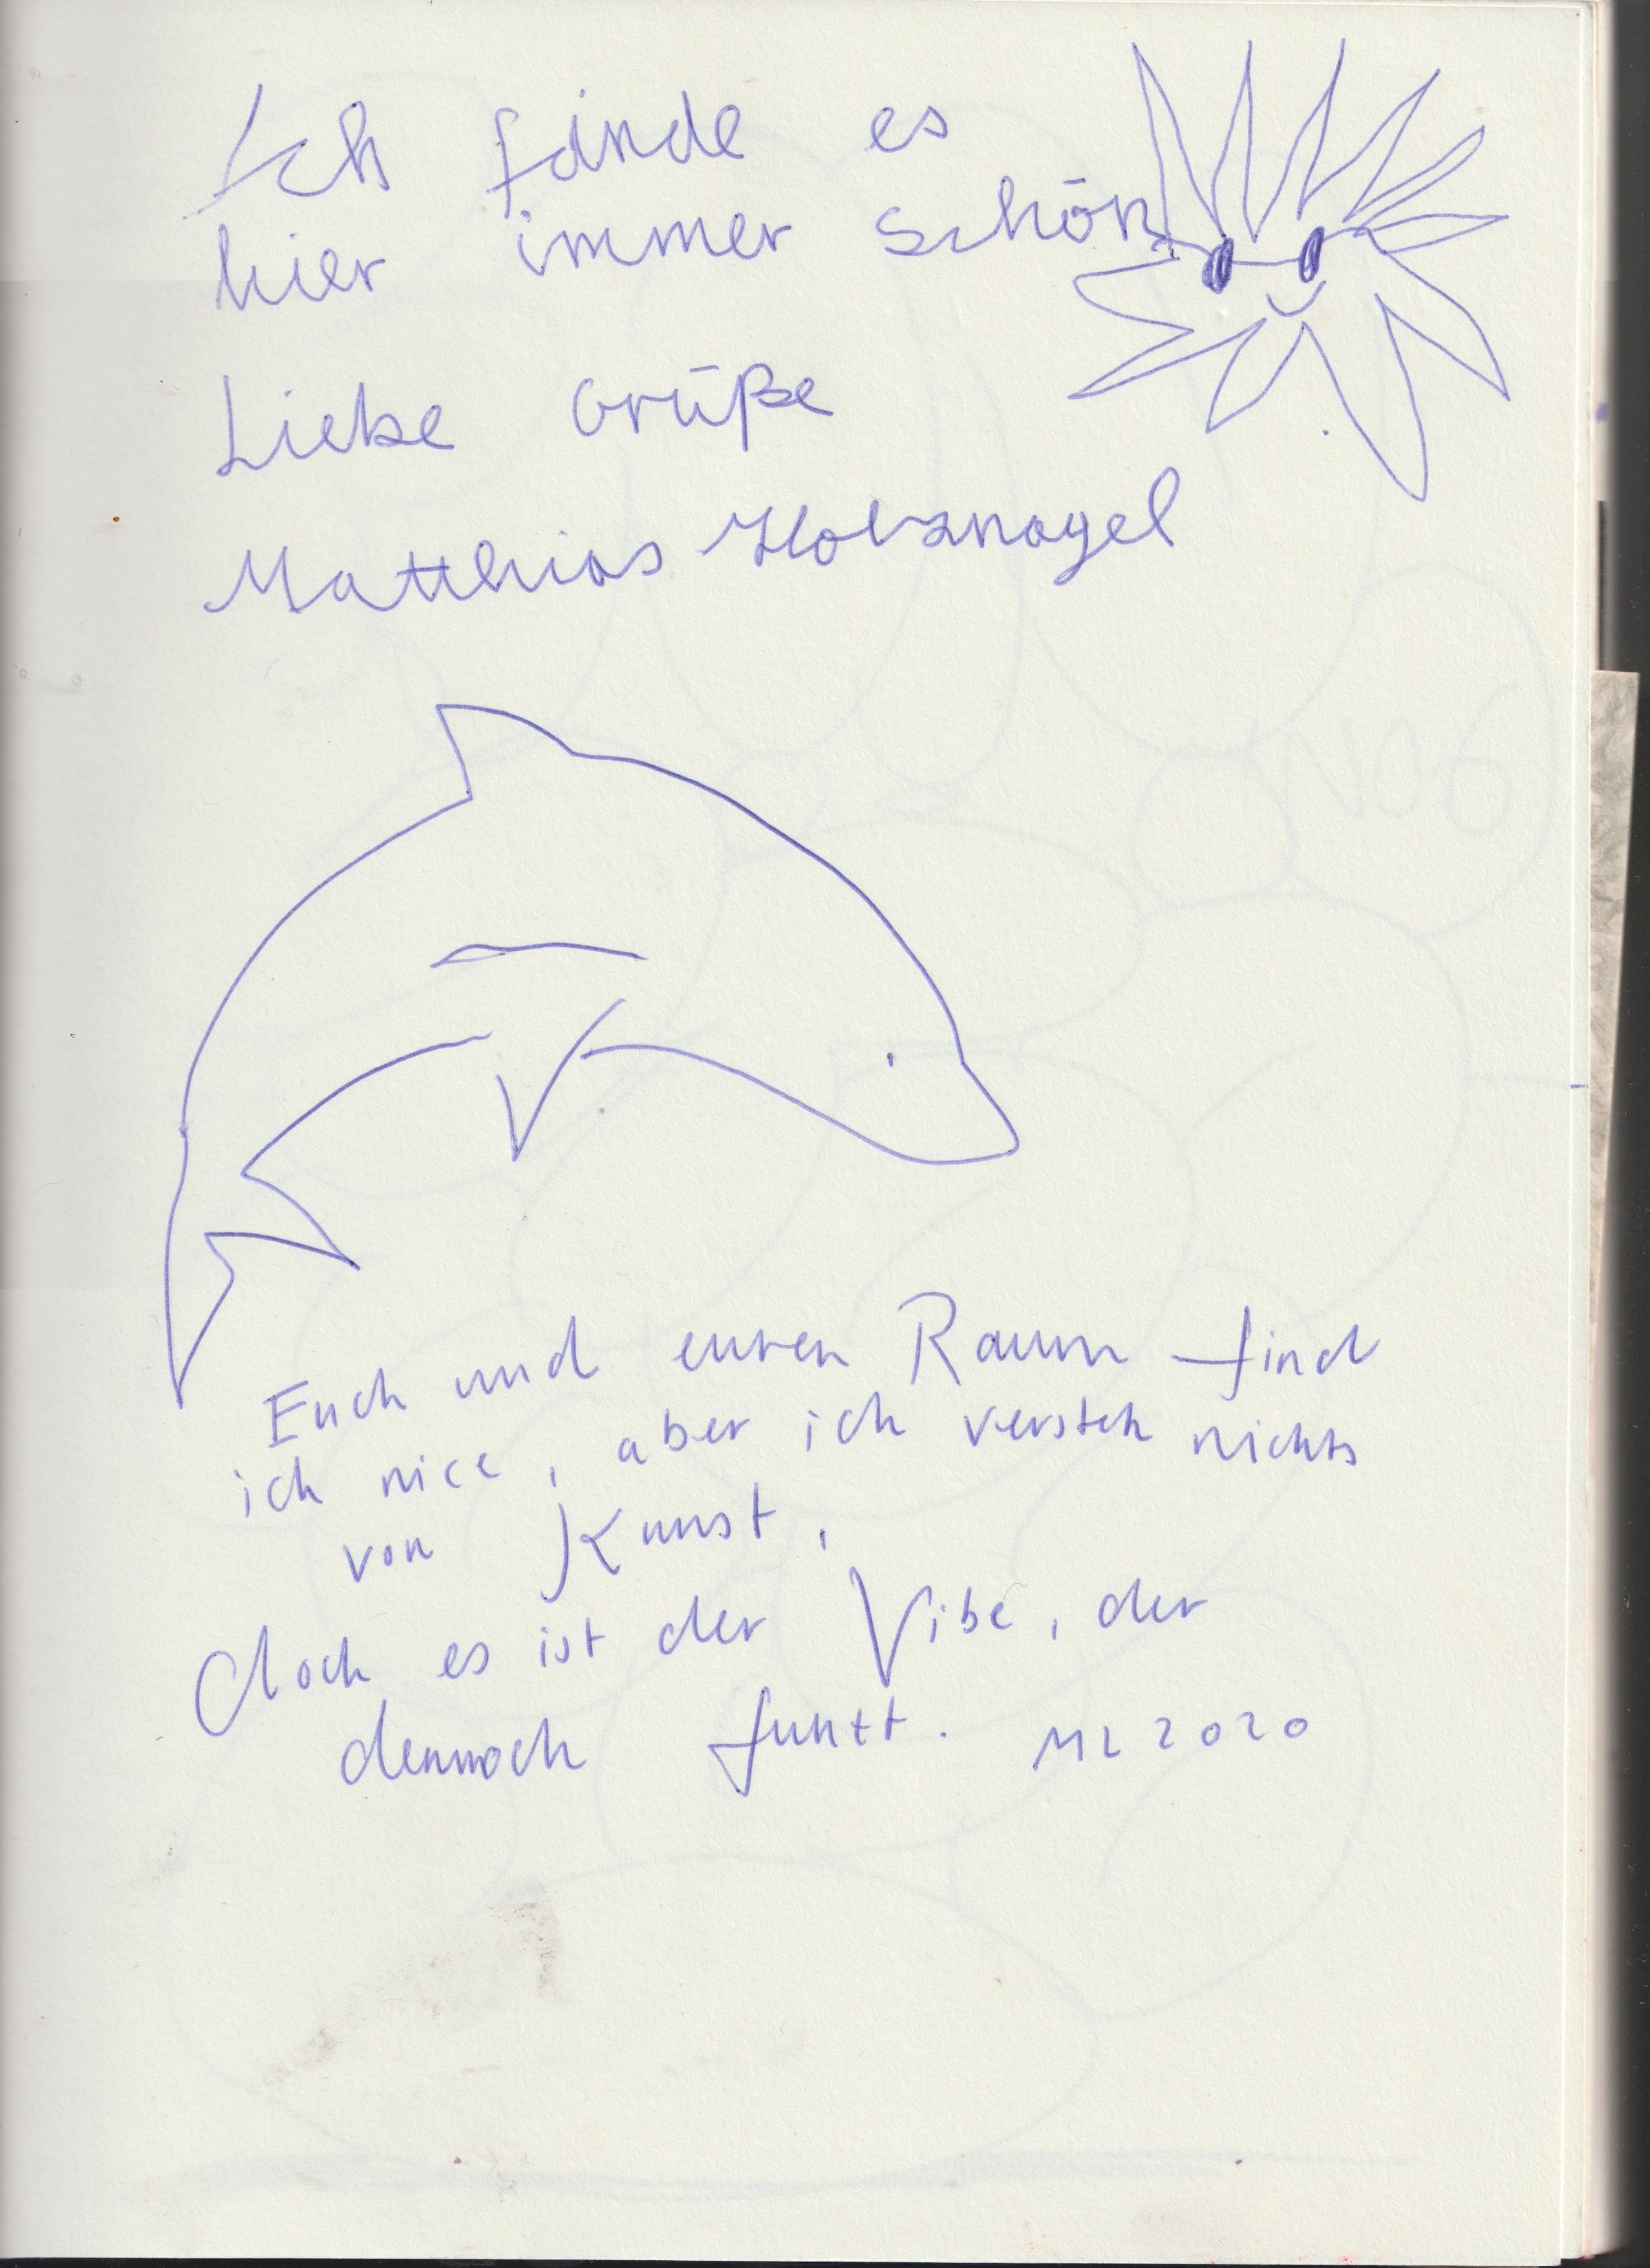 Ich finde es
hier immer schön
Liebe Grüße
Matthias Holznagel
Euch und euren Raum find
ich nice, aber ich versteh nichts
von Kunst,
doch es ist der Vibe, der
dennoch funzt. ML 2020